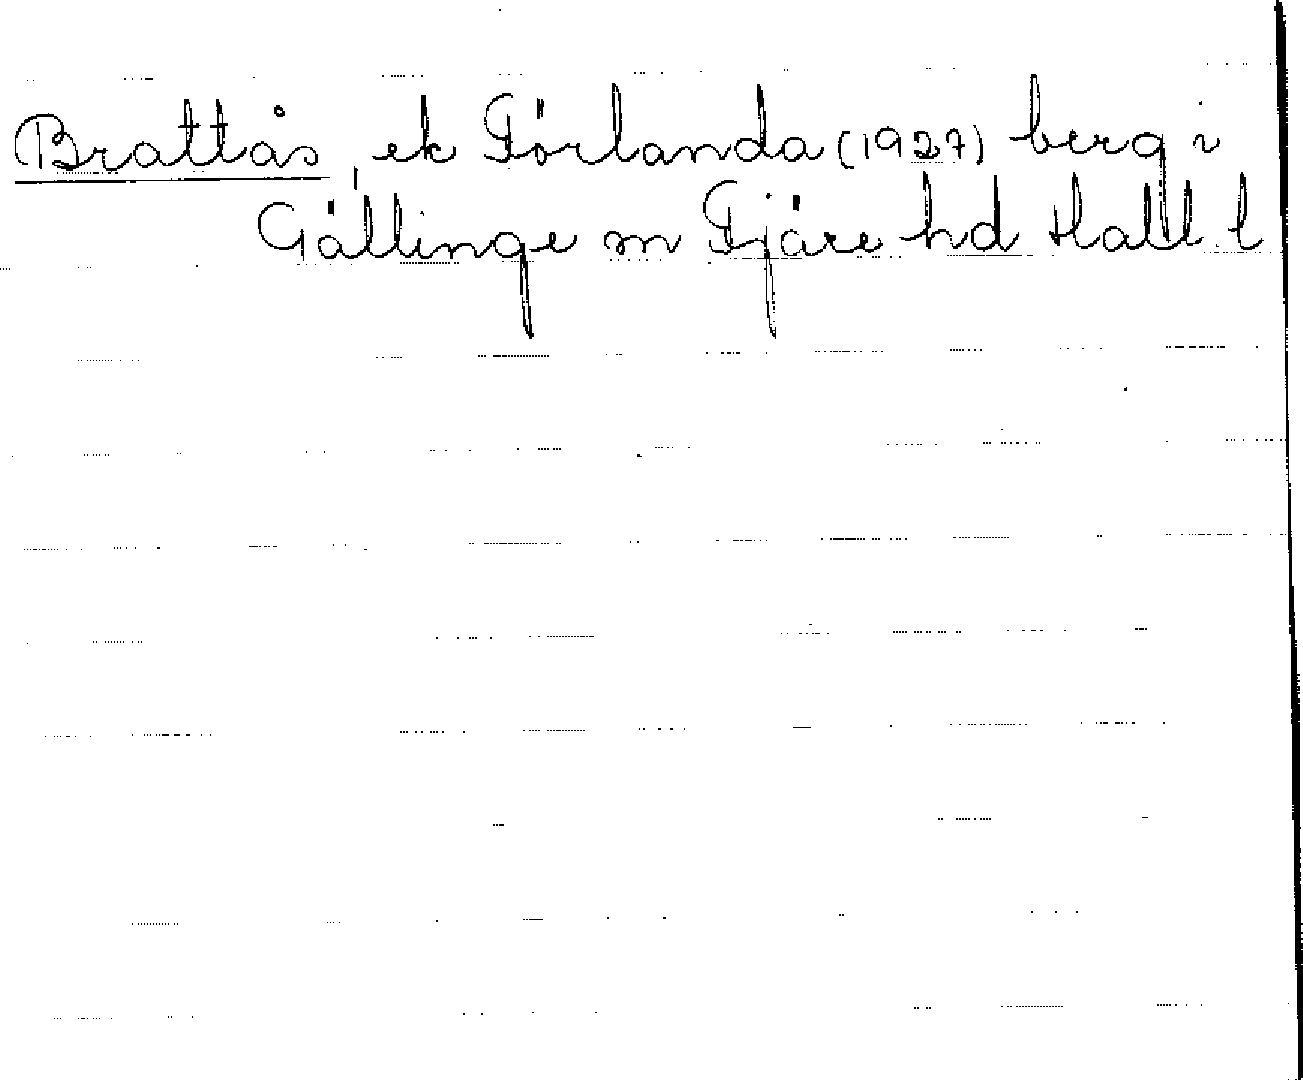 Brattås, ek Förlanda (1927) berg i
Gällinge sn Fjäre hd Hall l